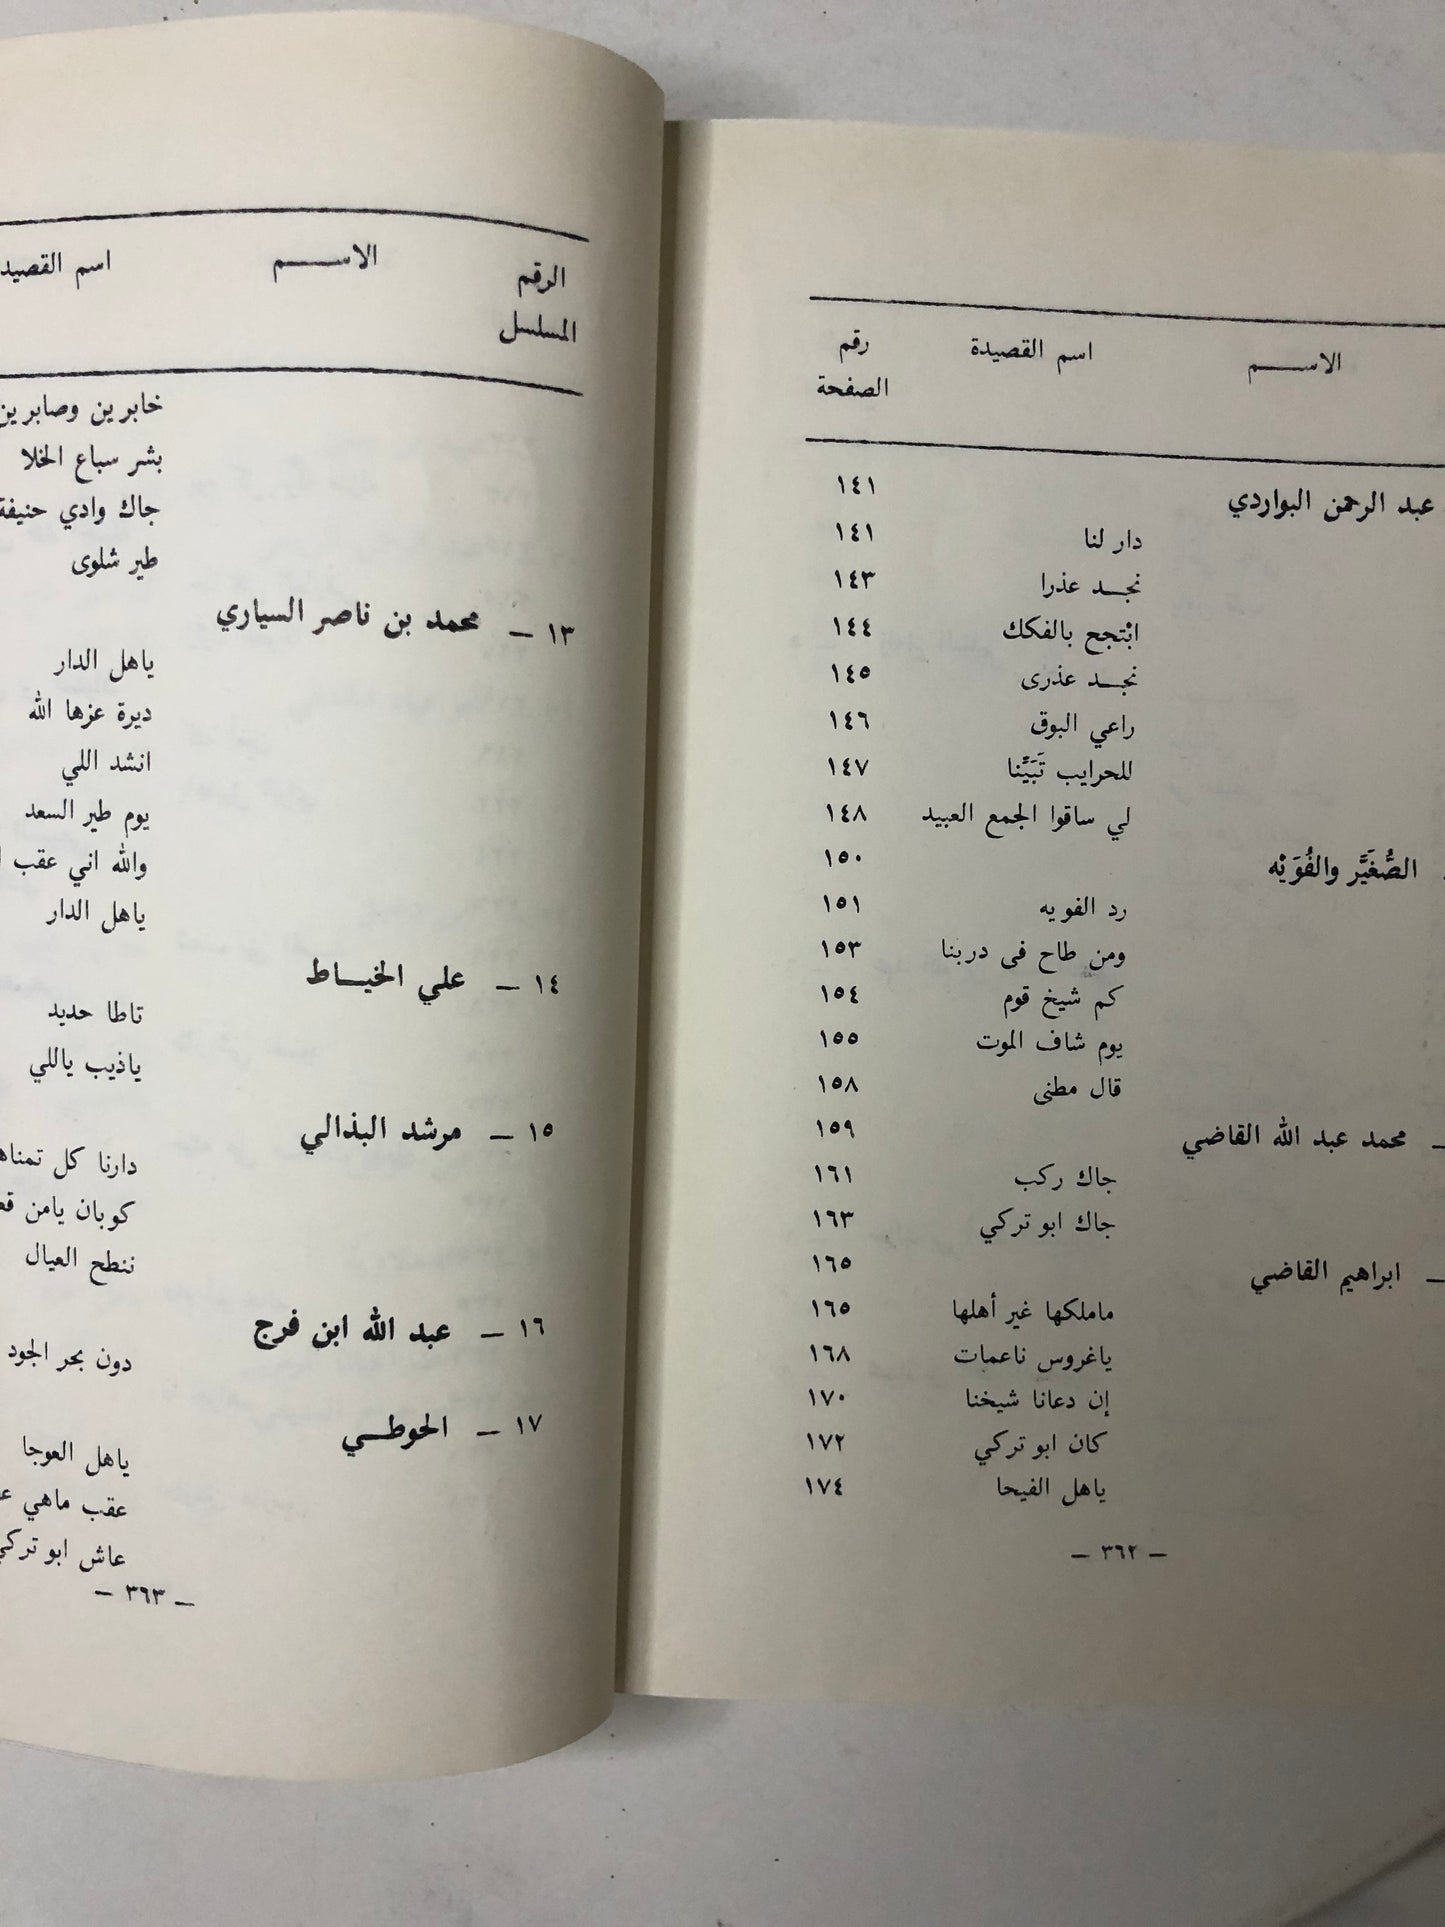 الاســـم اسم القصيدة رقم
الصفحة
عبد الرحمن البواردي ١٤١
دار لنا ١٤١
نجـــد عذرا ١٤٣
ابْتجح بالفكك ١٤٤
نجـــد عذرى ١٤٥
راعي البوق ١٤٦
للحرايب تَبَيَّنا ١٤٧
لي ساقوا الجمع العبيد ١٤٨
الصُّغَيَّر والفُوَيْه ١٥٠
رد الفويه ١٥١
ومن طاح فى دربنا ١٥٣
كم شيخ قوم ١٥٤
يوم شاف الموت ١٥٥
قال مطنى ١٥٨
– محمد عبد الله القاضي ١٥٩
جاك ركب ١٦١
جاك ابو تركي ١٦٣
– ابراهيم القاضي ١٦٥
ماملكها غير أهلها ١٦٥
ياغروس ناعمات ١٦٨
إن دعانا شيخنا ١٧٠
كان ابو تركي ١٧٢
ياهل الفيحا ١٧٤
– ٣٦٢ –
الرقم الاســـم اسم القصيد
المسلسل
خابرين وصابرين
بشر سباع الخلا
جاك وادي حنيفة
طير شلوى
١٣ – محمد بن ناصر السياري
ياهل الدار
ديرة عزها الله
انشد اللي
يوم طير السعد
والله اني عقب
ياهل الدار
١٤ – علي الخيـــاط
تاطا حديد
ياذيب ياللي
١٥ – مرشد البذالي
دارنا كل
كوبان يامن
ننطح العيال
١٦ – عبد الله ابن فرج
دون بحر الجود
١٧ – الحوطـــي
ياهل العوجا
عقب ماهي
عاش ابو تركي
– ٣٦٣ –